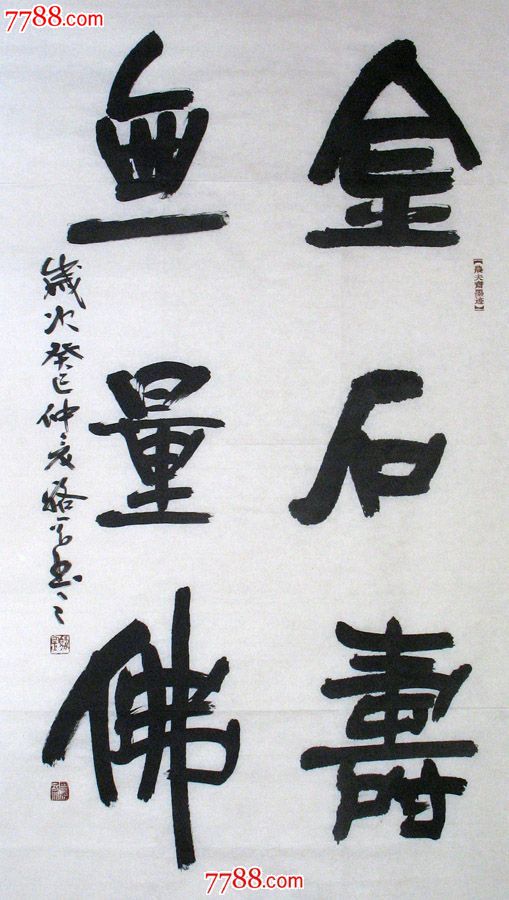 7788.com
金石壽
無量佛
歲次癸巳仲夏
7788.com